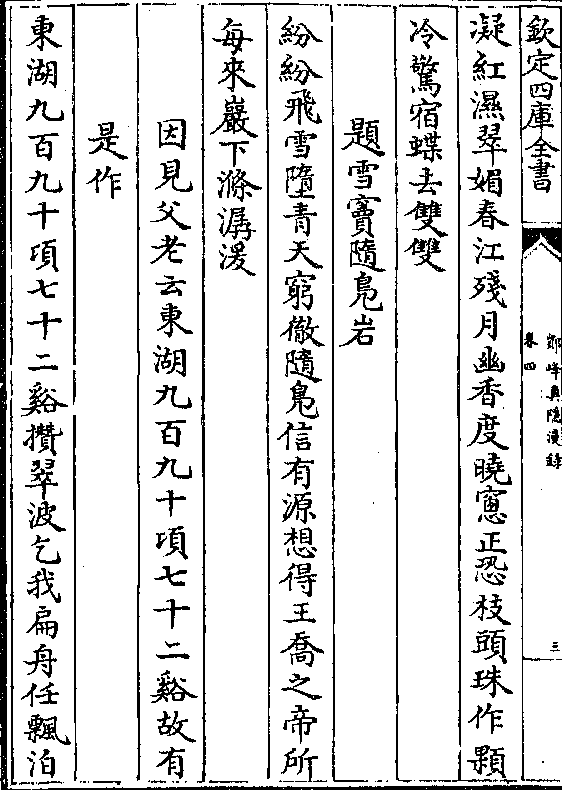 欽定四庫全書
鄮峰真隱漫錄
卷四
三
凝紅濕翠媚春江殘月幽香度曉窻正恐枝頭珠作顆
冷驚宿蝶去雙雙
題雪竇隨鳬岩
紛紛飛雪墮青天窮徹隨鳬信有源想得王喬之帝所
每來巖下滌潺湲
因見父老云東湖九百九十頃七十二谿故有
是作
東湖九百九十頃七十二谿攢翠波乞我扁舟任飄泊